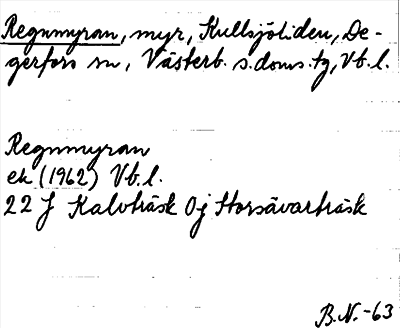 Regnmyran, myr, Kullsjöliden, De-
gerfors sn, Västerb. s.doms.tg, Vb.l.
Regnmyran
ek (1962) Vb.l.
22 J Kalvträsk 0j Storsävarträsk
B.N.-63